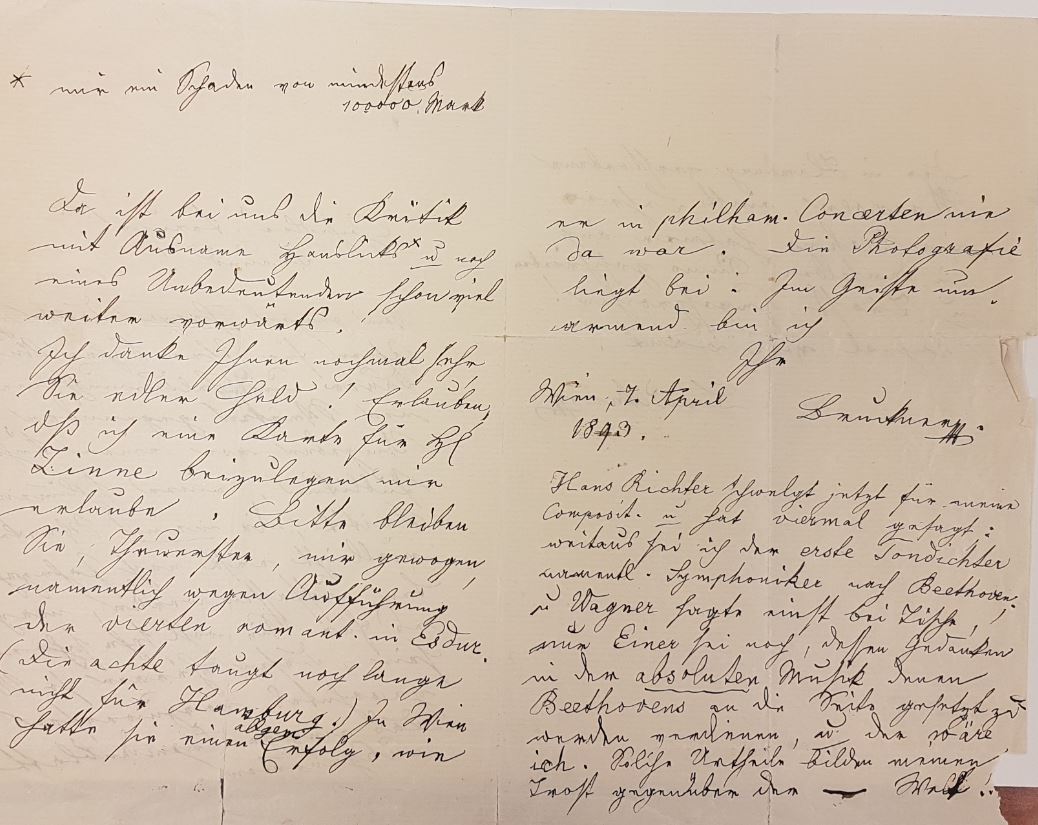 * mir ein Schaden von mindestens
100000 Mark
Da ist bei uns die Kritik
mit Ausname Hanslicks* u noch
eines Unbedeutenden schon viel
weiter vorwärts.
Ich danke Ihnen nochmal sehr
Sie edler Held! Erlauben,
dß ich eine Karte für H
Zinne beizulegen mir
erlaube. Bitte bleiben
Sie, Theuerster, mir gewogen,
namentlich wegen Aufführung
der vierten romant. in Esdur.
(Die achte taugt noch lange
nicht für Hamburg.) In Wien
hatte sie einen allgem Erfolg, wie
er in philham. Concerten nie
da war. Die Photografie
liegt bei. Im Geiste um-
armend bin ich
Ihr
Wien, 7. April
Bruckner.
1893.
Hans Richter schwelgt jetzt für meine
Composit. u hat viermal gesagt:
weitaus sei ich der erste Tondichter
namentl. Symphoniker nach Beethoven.
u Wagner sagte einst bei Tische,
nur Einer sei noch, dessen Gedanken
in der absoluten Musik denen
Beethovens an die Seite gesetzt zu
werden verdienen, u der wäre
ich. Solche Urtheile bilden meinen
Trost gegenüber der — Welt!